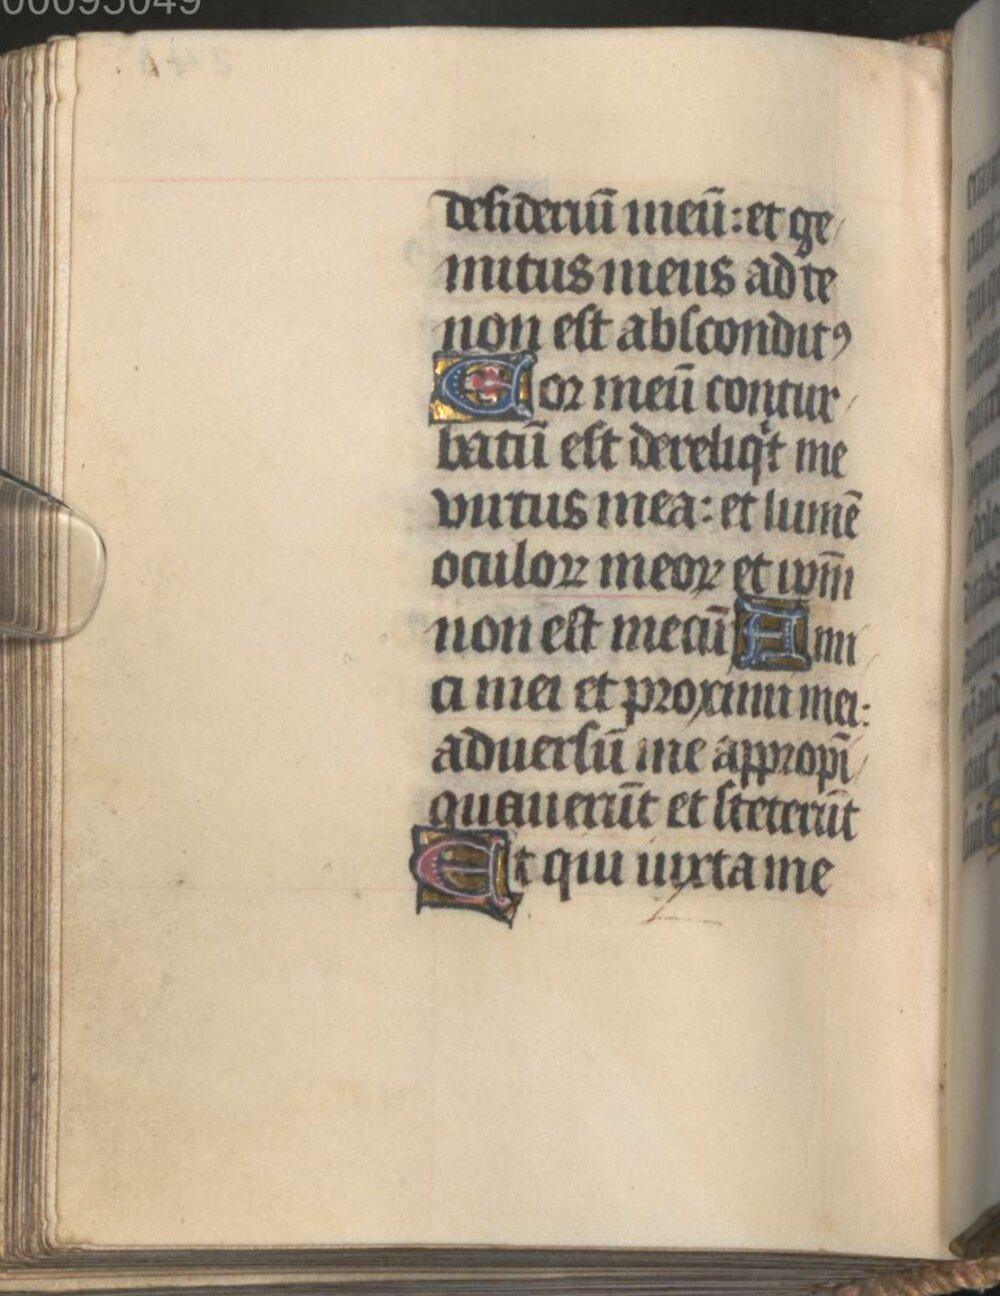 00095049
desideriū meū: et ge
mitus meus ad te
non est absconditꝰ
Cor meū contur
batū est dereliqͥt me
virtus mea: et lumē
oculoꝝ meoꝝ et ip̄m
non est mecū Ami
ci mei et proximi mei:
adversū me appropī
quaverūt et steterūt
Et qui iuxta me